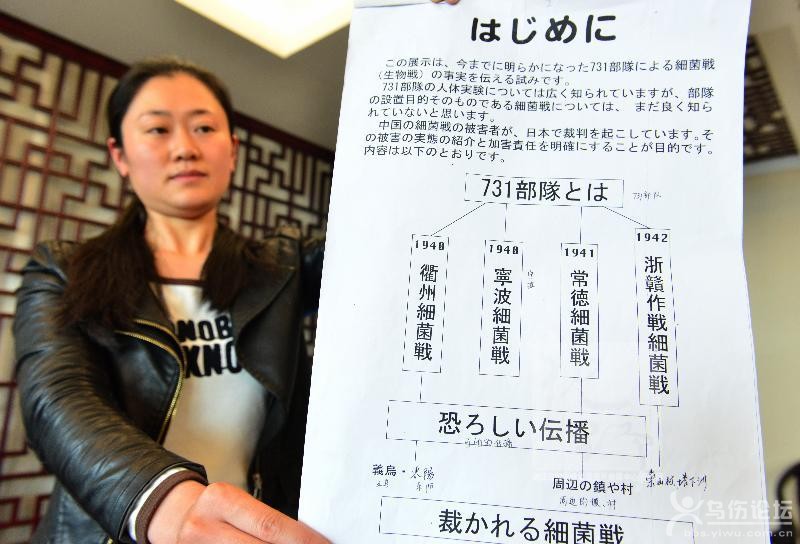 はじめに
この展示は、今までに明らかになった731部隊による細菌戦
（生物戦）の事実を伝える試みです。
731部隊の人体実験については広く知られていますが、部隊
の設置目的そのものである細菌戦については、まだ良く知ら
れていないと思います。
中国の細菌戦の被害者が、日本で裁判を起こしています。そ
の被害の実態の紹介と加害責任を明確にすることが目的です。
内容は以下のとおりです。
731部隊とは
731部队
1940
衢州細菌戦
1940
寧波細菌戦
1941
常徳細菌戦
1942
浙贛作戦細菌戦
恐ろしい伝播
義烏・太陽
周辺の鎮や村
周边的镇、村
裁かれる細菌戦
乌伤论坛
bbs.yiwu.com.cn